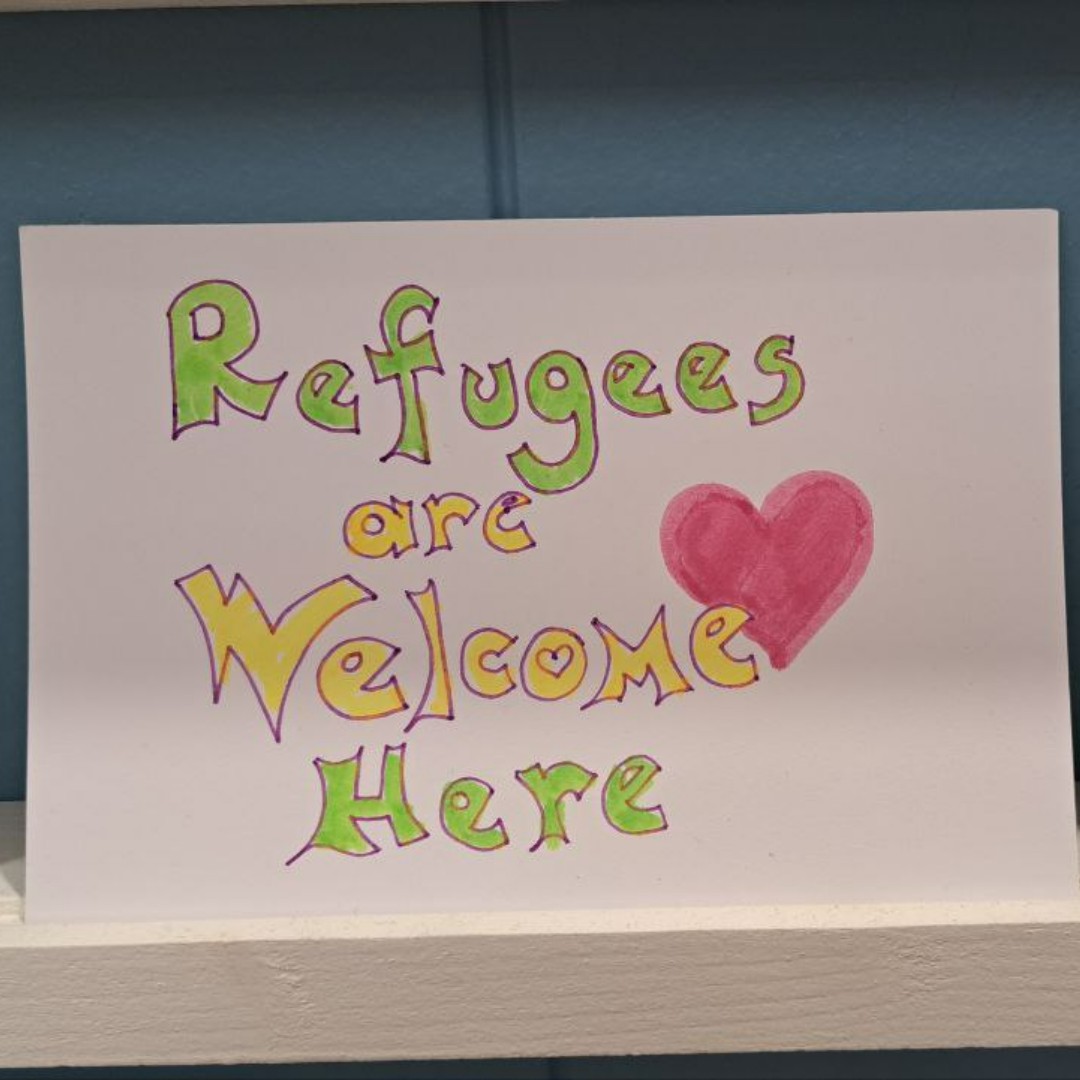 Refugees
are
Welcome
Here